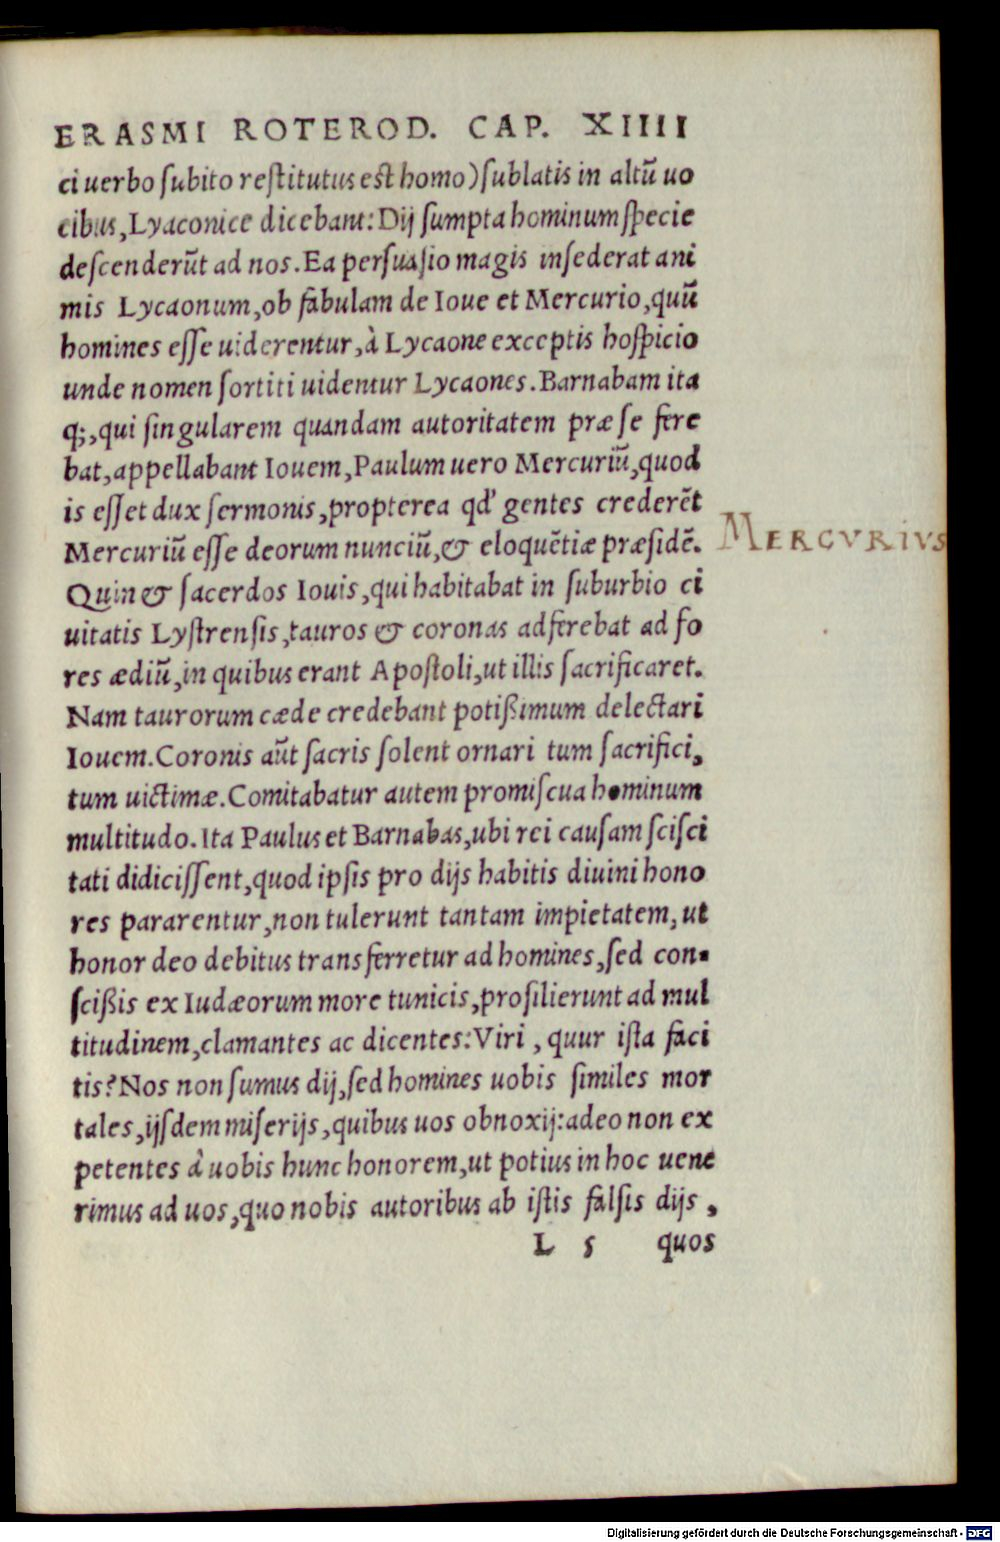 ERASMI ROTEROD. CAP. XIIII
ci uerbo ſubito reſtitutus est homo) ſublatis in altū uo
cibus, Lyaconice dicebant: Dij ſumpta hominum ſpecie
deſcenderūt ad nos. Ea perſuaſio magis inſederat ani
mis Lycaonum, ob fabulam de Ioue et Mercurio, quū
homines eſſe uiderentur, à Lycaone exceptis hoſpicio
unde nomen ſortiti uidentur Lycaones. Barnabam ita
q;, qui ſingularem quandam autoritatem præ ſe fere
bat, appellabant Iouem, Paulum uero Mercuriū, quod
is eſſet dux ſermonis, propterea qd' gentes crederēt
Mercuriū eſſe deorum nunciū, & eloquētiæ præſidē.
MERCVRIVS
Quin & ſacerdos Iouis, qui habitabat in ſuburbio ci
uitatis Lyſtrenſis, tauros & coronas adferebat ad fo
res ædiū, in quibus erant Apoſtoli, ut illis ſacrificaret.
Nam taurorum cæde credebant potißimum delectari
Iouem. Coronis aūt ſacris ſolent ornari tum ſacrifici,
tum uictimæ. Comitabatur autem promiſcua hominum
multitudo. Ita Paulus et Barnabas, ubi rei cauſam ſciſci
tati didiciſſent, quod ipſis pro dijs habitis diuini hono
res pararentur, non tulerunt tantam impietatem, ut
honor deo debitus transferretur ad homines, ſed con-
ſcißis ex Iudæorum more tunicis, proſilierunt ad mul
titudinem, clamantes ac dicentes: Viri, quur iſta faci
tis? Nos non ſumus dij, ſed homines uobis ſimiles mor
tales, ijſdem miſerijs, quibus uos obnoxij: adeo non ex
petentes à uobis hunc honorem, ut potius in hoc uene
rimus ad uos, quo nobis autoribus ab iſtis falſis dijs,
L 5 quos
Digitalisierung gefördert durch die Deutsche Forschungsgemeinschaft - DFG